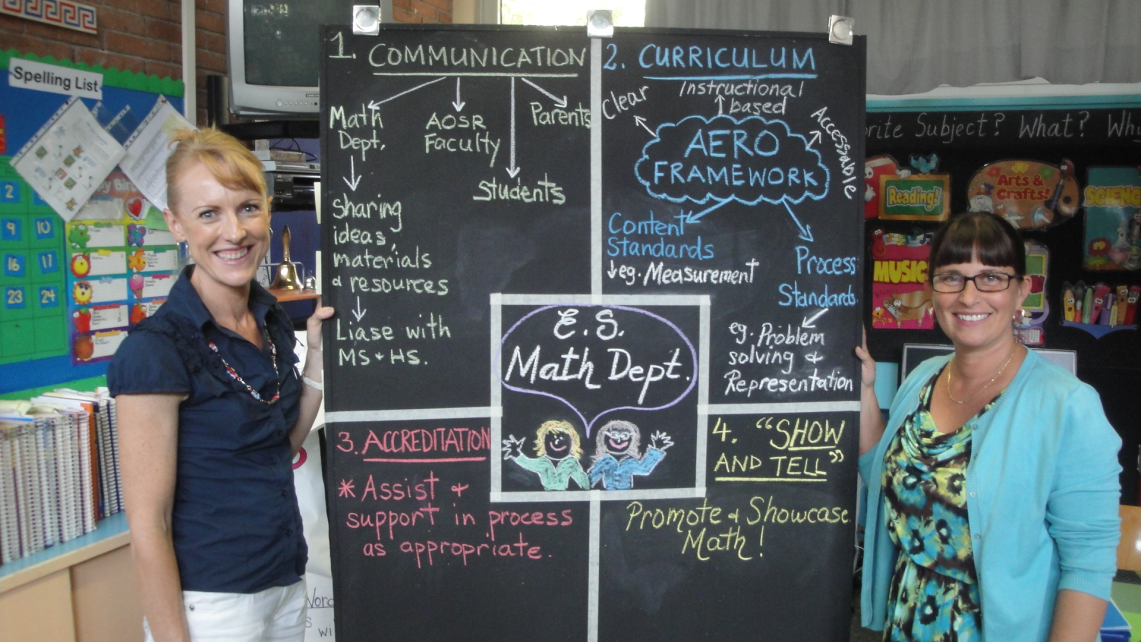 1. COMMUNICATION
Math
Dept.
AOSR
Faculty
Students
Parents
Sharing
ideas,
materials
& resources
Liase with
MS + HS.
2. CURRICULUM
Clear
Instructional
based
Accessable
AERO
FRAMEWORK
Content
Standards
eg. Measurement
Process
Standards
eg. Problem
solving &
Representation
E. S.
Math Dept.
3. ACCREDITATION
* Assist &
support in process
as appropriate.
4. "SHOW
AND TELL"
Promote & Showcase
Math!
Spelling List
2
9 10
16 17
23 24
Subject? What?
Reading!
Arts &
Crafts!
MUSIC